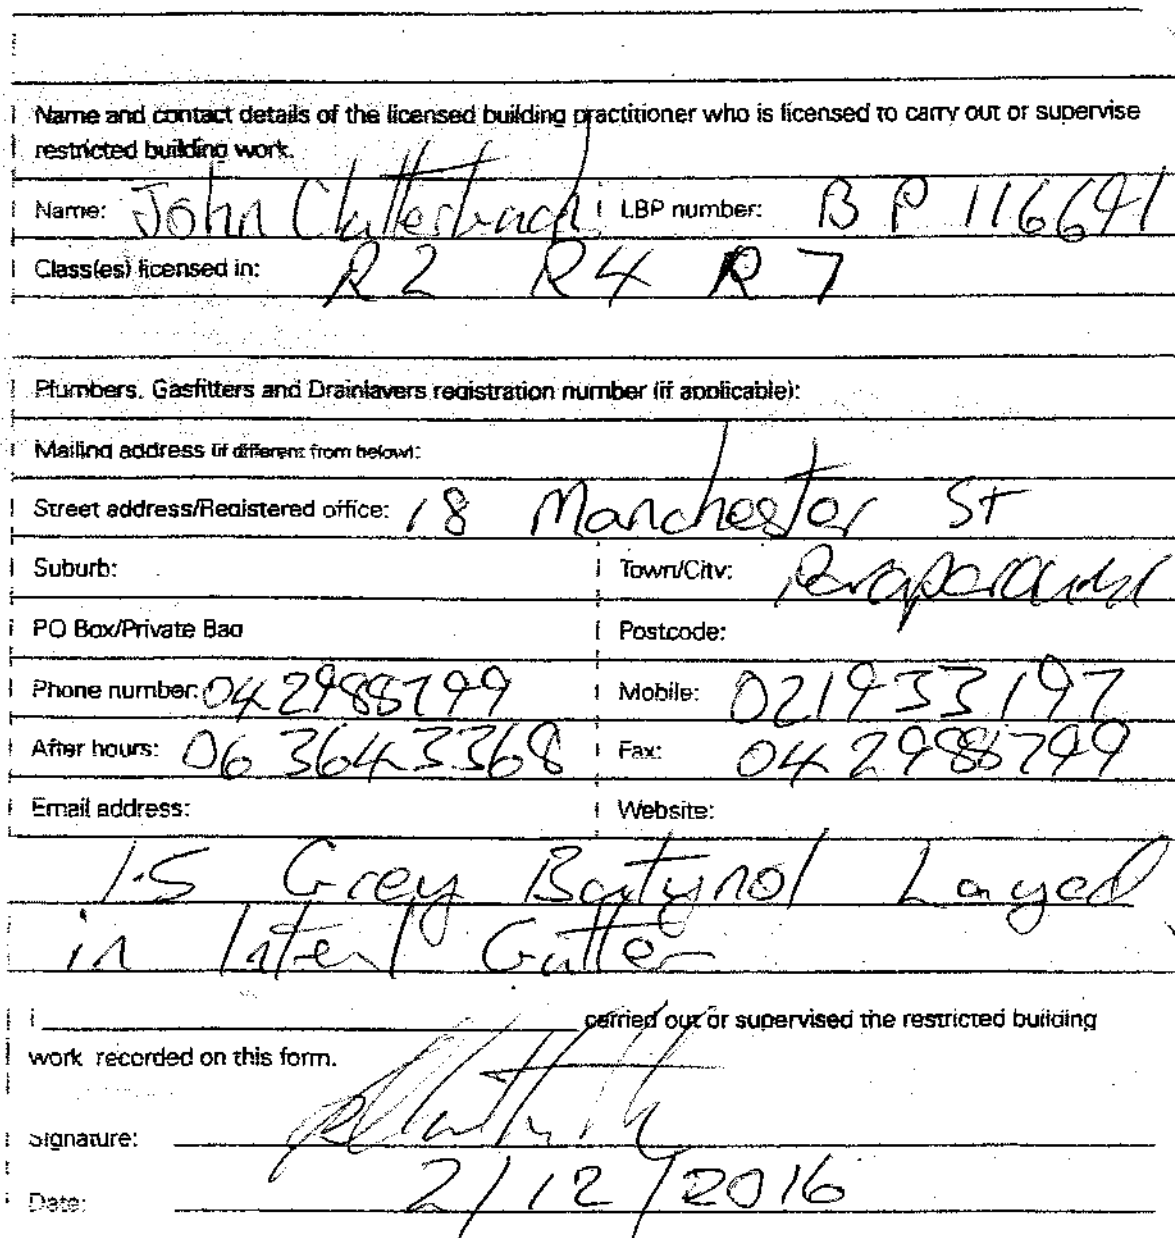 Name and contact details of the licensed building practitioner who is licensed to carry out or supervise
restricted building work.
Name: John Clutterbuck LBP number: BP 116691
Class(es) licensed in: R2 R4 R7
Plumbers, Gasfitters and Drainlayers registration number (if applicable):
Mailing address (if different from below):
Street address/Registered office: 18 Manchester St
Suburb: Town/City: Paraparaumu
PO Box/Private Bag Postcode:
Phone number: 04 2988799 Mobile: 021933197
After hours: 06 3643368 Fax: 04 2988799
Email address: Website:
1.5 Grey Butynol Layed
in Internl Gutter
I carried out or supervised the restricted building
work recorded on this form.
Signature:
Date: 2/12/2016